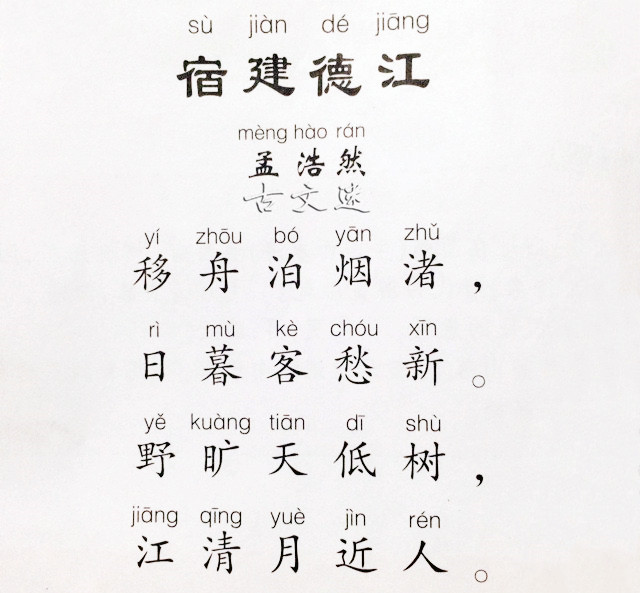 sù jiàn dé jiāng
宿建德江
mèng hào rán
孟浩然
yí zhōu bó yān zhǔ
移舟泊烟渚，
rì mù kè chóu xīn
日暮客愁新。
yě kuàng tiān dī shù
野旷天低树，
jiāng qīng yuè jìn rén
江清月近人。